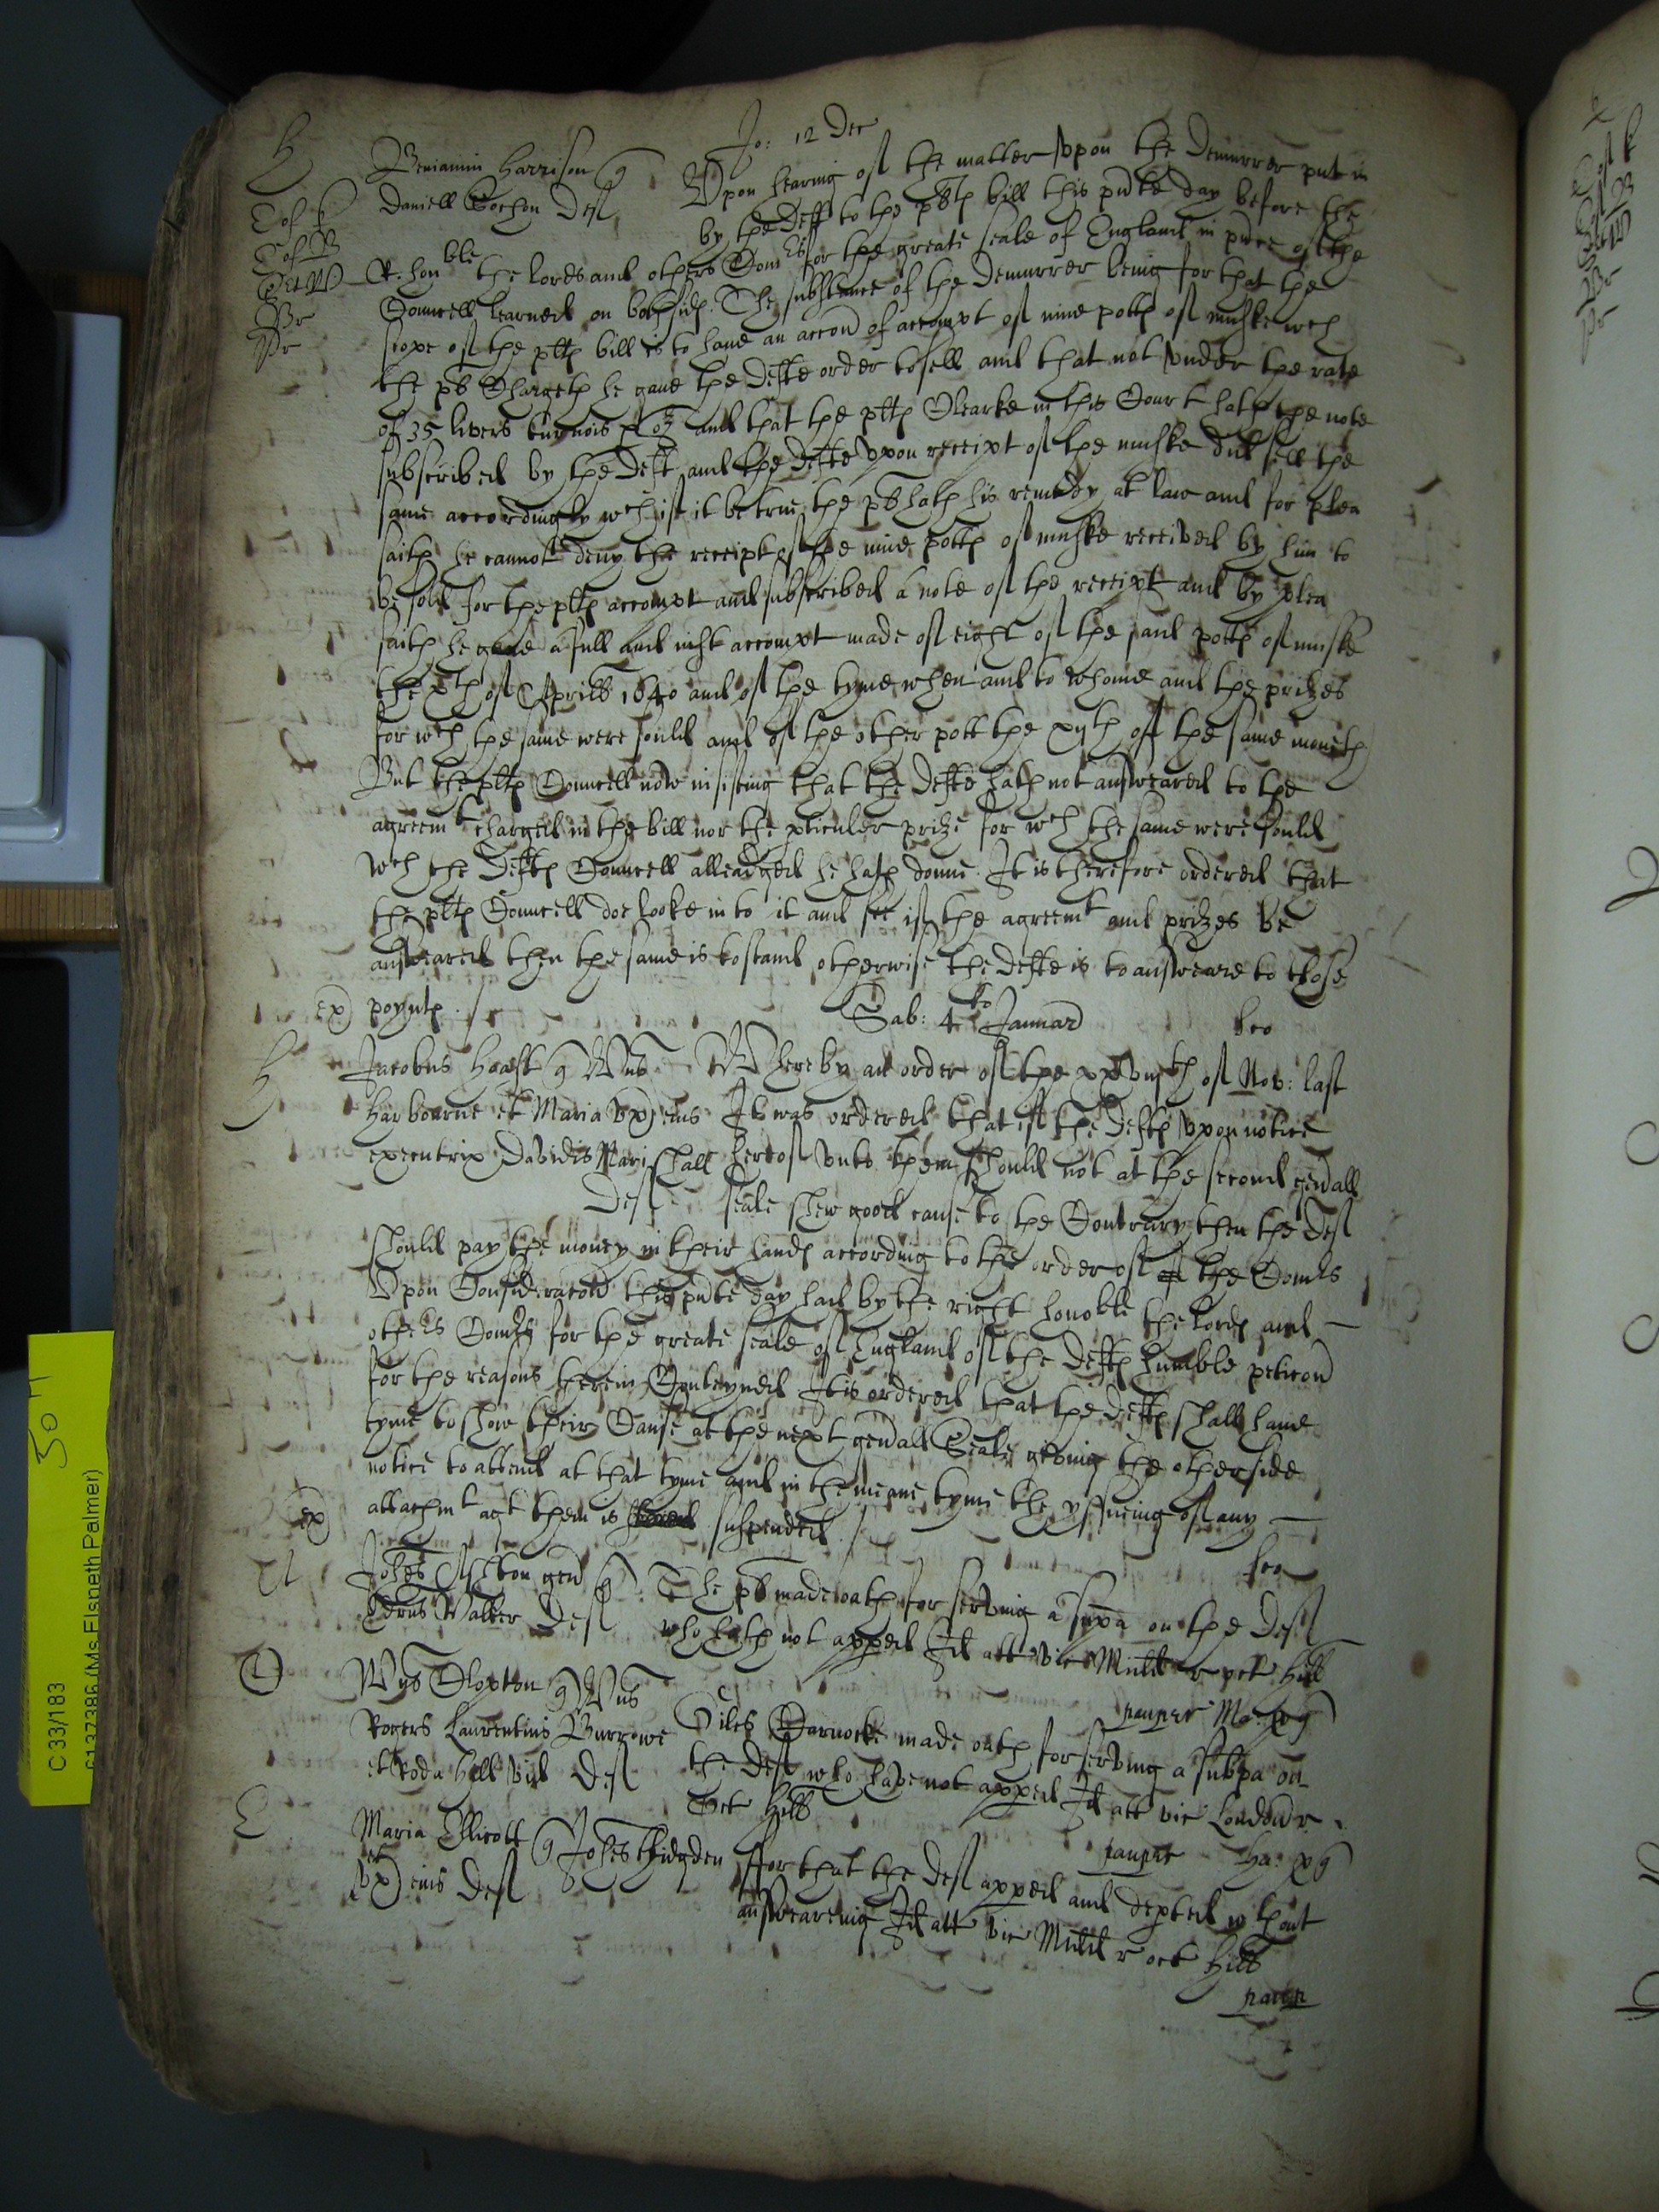 Jo: 12 Dec
H
Beniamin Harrison q
Daniell Cochon Def
Upon hearing of the matter upon the Demurrer put in
by the Deft to the plts bill this pnte day before the
E of K
E of B
R: honble the lords and others Comrs for the greate seale of England in pnce of the
Councell learned on both sids. The substance of the Demurrer being for that the
scope of the plts bill is to have an accon of accompt of nine potts of muske wch
the pl Chargeth he gave the Defte order to sell and that not under the rate
of 35 livers turnois p oz and that the plts Clearke in this Court hath the note
subscribed by the Deft and the Defte upon receipt of the muske did sell the
same accordingly wch if it be true the pl hath his remedy at law and for plea
saith he cannot deny the receipt of the nine potts of muske received by him to
be sold for the plts accompt and subscribed a note of the receipt and by plea
saith he gave a full and iust accompt made of eight of the said potts of muske
the xth of Aprill 1640 and of the tyme when and to whome and the prizes
for wch the same were sould and of the other pott the xijth of the same moneth
But the plts Councell now insisting that the Defte hath not answeared to the
agreemt charged in the bill nor the pticuler prize for wch the same were sould
wch the Defts Councell alleadged he hath donne. It is therefore ordered that
the plts Councell doe looke in to it and see if the agreemt and prizes be
answeared then the same is to stand otherwise the Defte is to answeare to those
ex poynts.
Sab: 4to Januar
H
Jacobus Haast q Wms
Harbourne et Maria ux eius
executrix Davidis Marishall
Def
Where by an order of the xxviijth of Nov: last
It was ordered that if the Defts upon notice
hereof unto them should not at the second genall
seale shew good cause to the Contrary then the Def
should pay the money in their hands according to the order of the Comrs
Upon Consideracon this pnte day had by the right honoble the lords and
others Comrs for the greate seale of England of the Defts humble peticon
for the reasons therein Conteyned It is ordered that the Defts shall have
tyme to show their Cause at the next genall Seale giving the other side
notice to attend at that tyme and in the meane tyme the yssueing of any
ex attachmt agt them is suspended.
A
Johes Ashton gen q
Edrus Walker Def
The pl made oath for serving a supa on the Def
who hath not apped Id att vic Midd r oct Hill
C
Wms Clopton q Wms
Rogers Laurentius Burrowe
et Roda Hill vid Def
Giles made oath for serving a subpa on
the Def who have not apped Id att vic London r
Oct Hill
E
Maria Ellicott q Johes
et ux eius Def
ffor that the Def apped and depted wthout
answeareing Id att vic Midd r oct Hill
C 33/183
(Ms Elspeth Palmer)